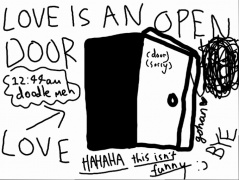 LOVE IS AN OPEN
DOOR
(door)
(sorry)
(12:44am
doodle meh)
BYE
LOVE
HAHAHA this isn't
funny :)